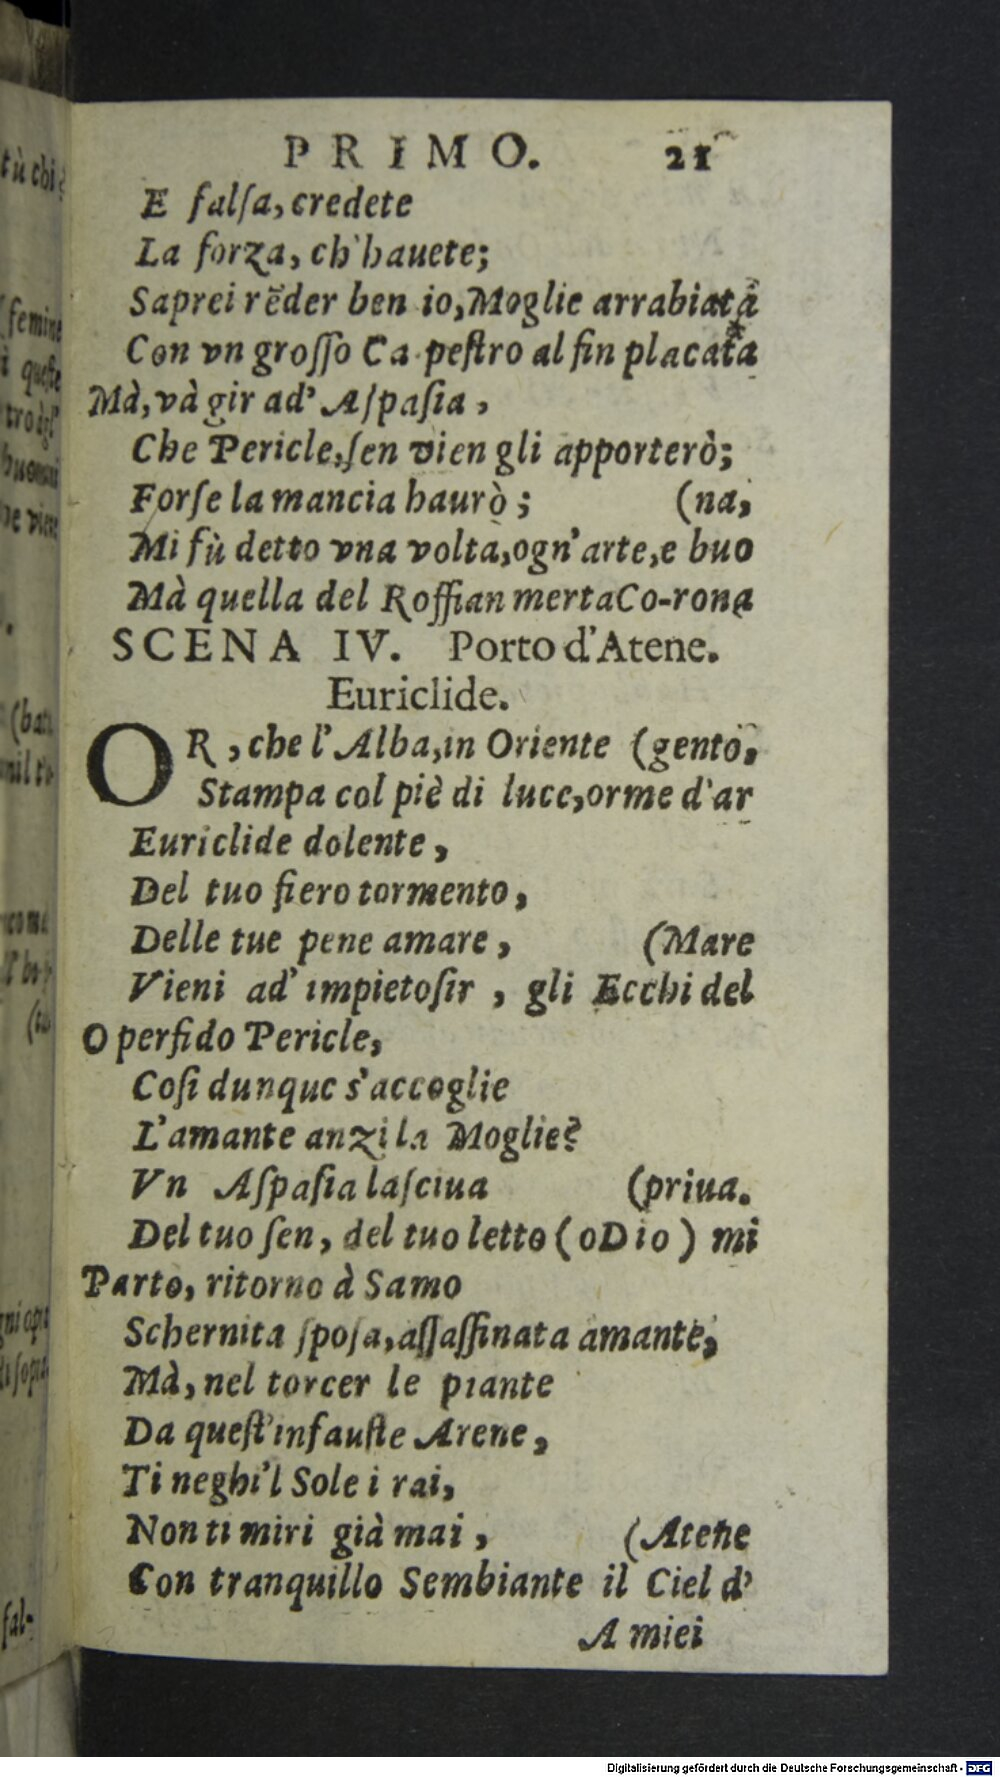 PRIMO. 21
E falſa, credete
La forza, ch'hauete;
Saprei rẽder ben io, Moglie arrabiata
Con vn groſſo Capeſtro al fin placata
Mà, và gir ad' Aſpaſia,
Che Pericle, ſen vien gli apporterò;
Forſe la mancia haurò; (na,
Mi fù detto vna volta, ogn'arte, e buo
Mà quella del Roffian merta Co-rona
SCENA IV. Porto d'Atene.
Euriclide.
OR, che l'Alba, in Oriente (gento,
Stampa col piè di luce, orme d'ar
Euriclide dolente,
Del tuo fiero tormento,
Delle tue pene amare, (Mare
Vieni ad' impietoſir, gli Ecchi del
O perfido Pericle,
Coſi dunque s'accoglie
L'amante anzi la Moglie?
Vn Aſpaſia laſciua (priua.
Del tuo ſen, del tuo letto (o Dio) mi
Parto, ritorno à Samo
Schernita ſpoſa, aſſaſſinata amante;
Mà, nel torcer le piante
Da queſt'infauſte Arene,
Ti neghi'l Sole i rai,
Non ti miri già mai, (Atene
Con tranquillo Sembiante il Ciel d'
A miei
tù chi?
femine
queſte
buomini
(bat
come
(tu
fal-
Digitalisierung gefördert durch die Deutsche Forschungsgemeinschaft - DFG